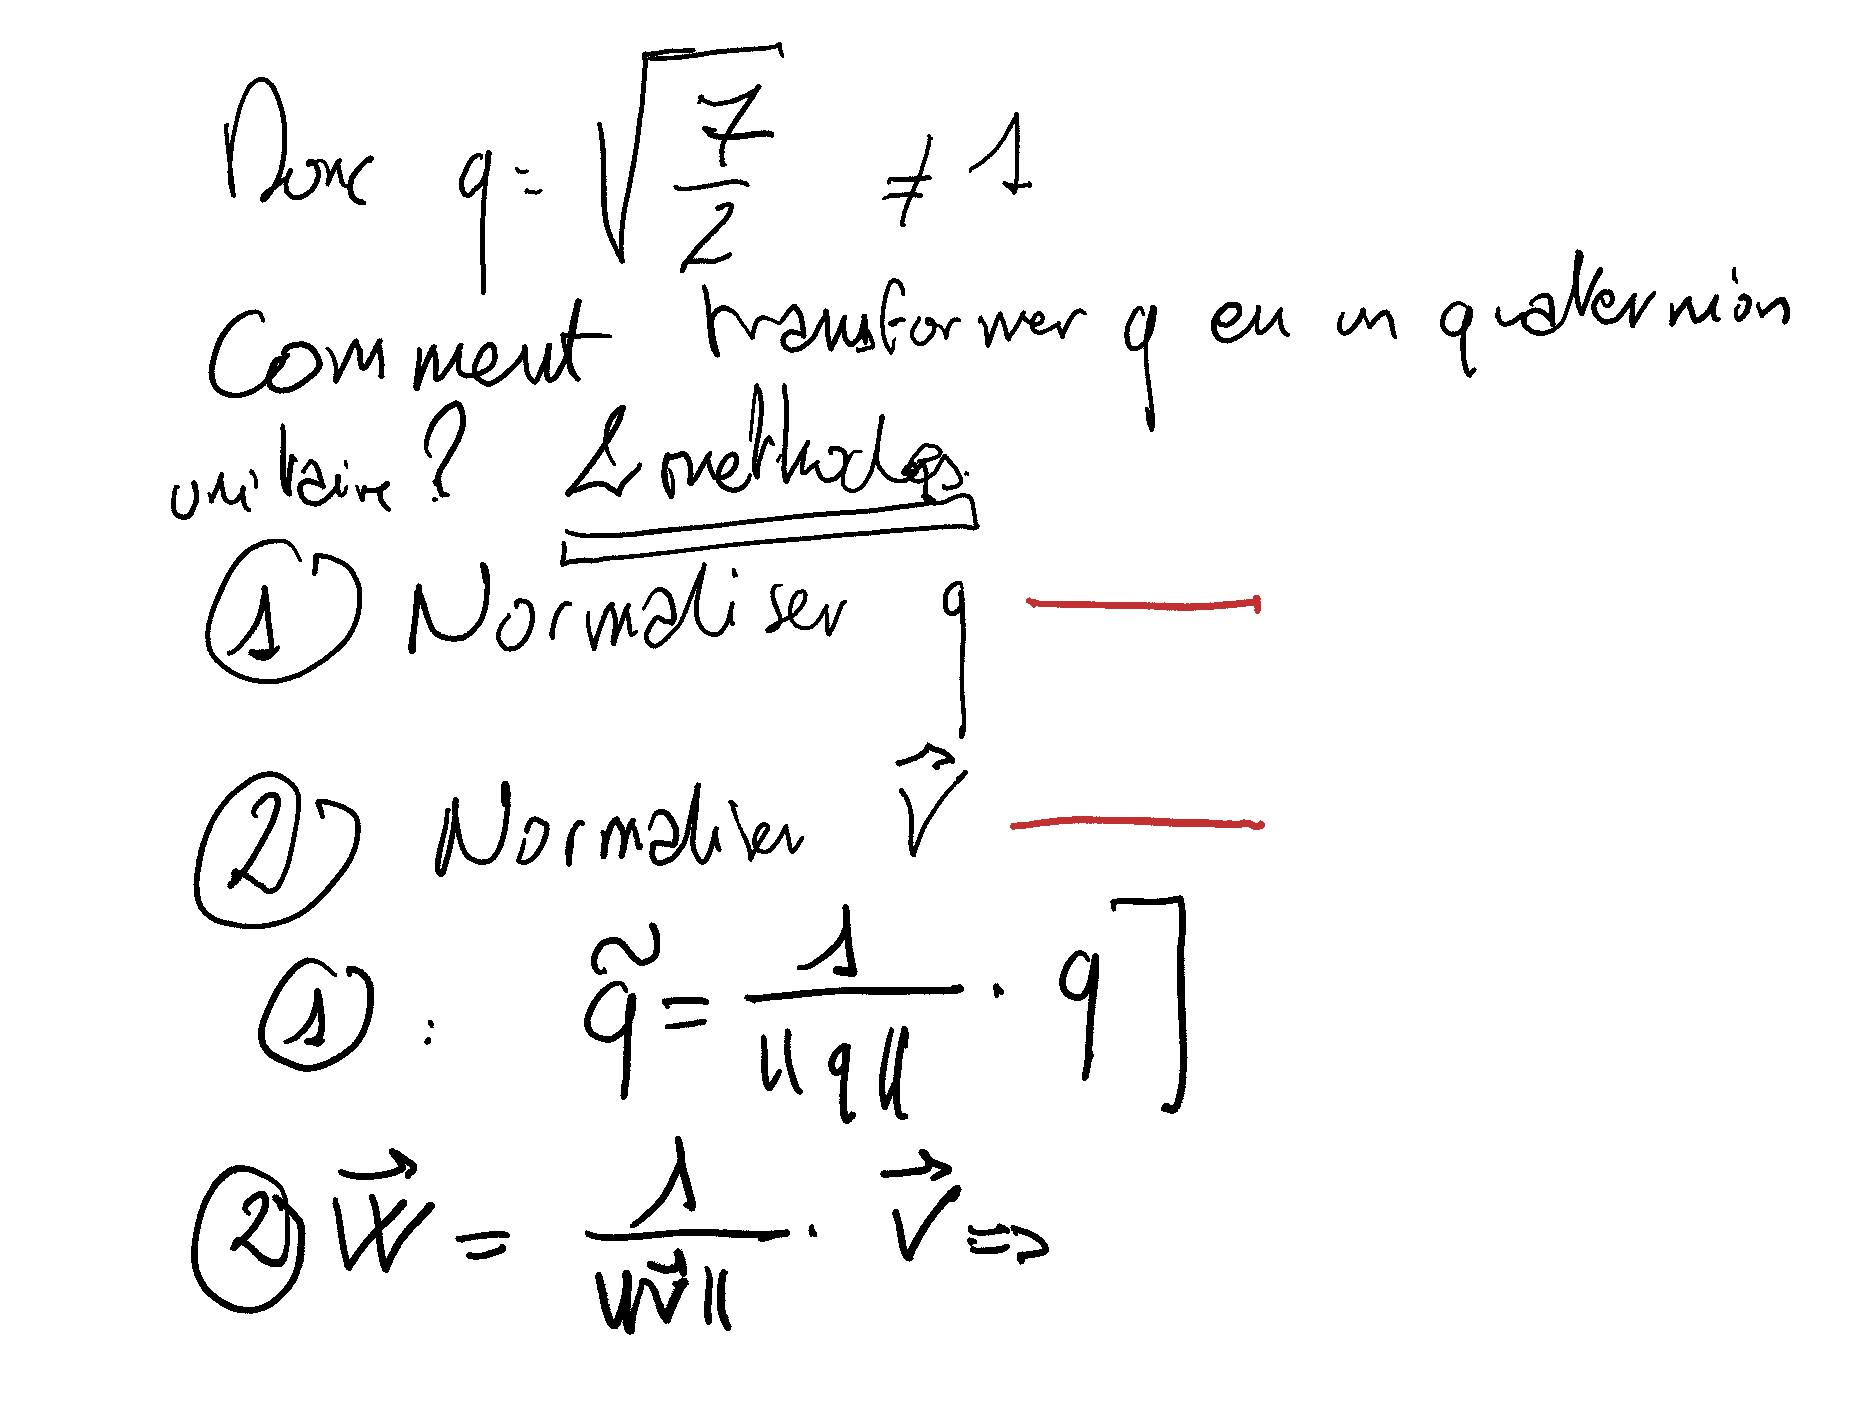 Donc q = √(7/2) ≠ 1
Comment transformer q en un quaternion
unitaire ? 2 méthodes.
① Normaliser q
② Normaliser v⃗
① : q̃ = 1/‖q‖ · q ]
② w⃗ = 1/‖v⃗‖ · v⃗ ⇒